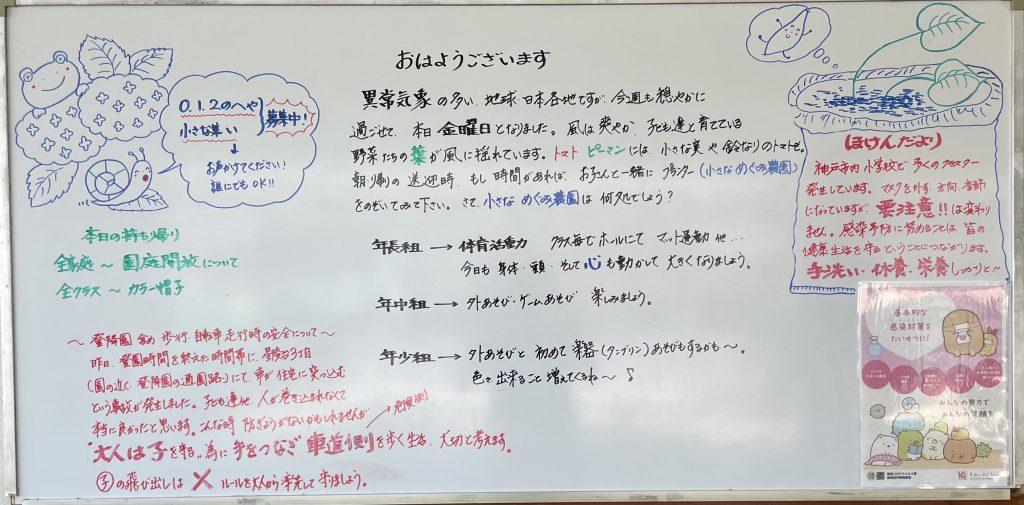 おはようございます
異常気象の多い、地球、日本各地ですが、今週も穏やかに
過ごせて、本日金曜日となりました。風は爽やか、子ども達と育てている
野菜たちの葉が風に揺れています。トマト ピーマンには、小さな実や鈴なりのトマトも。
朝夕の送迎時、もし時間があれば、お子さんと一緒に プランター(小さなめぐみ農園)
をのぞいてみて下さい。さて、小さなめぐみ農園は何処でしょう?
年長組 → 体育活動 クラス毎でホールにて マット運動 他…
今日も 身体・頭・そして心も動かして 大きくなりましょう。
年中組 → 外あそび・ゲームあそび 楽しみましょう。
年少組 → 外あそびと 初めて楽器(タンブリン)あそびもするかも～。
色々、出来ること 増えてくるね～♪
0.1.2のへや
小さな集い
募集中!
↓
お声かけてください!
誰にでもOK!!
本日の持ち帰り
全家庭～園庭開放について
全クラス～カラー帽子
～登降園含め 歩行・自転車走行時の安全について～
昨日、登園時間を終えた時間帯に、3丁目
(園の近く、登降園の通園路)にて、車が住宅に突っ込む
という事故が発生しました。子ども達他、人が巻き込まれなくて
本当に良かったと思います。こんな時 防ぎようがないかもしれませんが
→危険側
"大人は子を守る"為に 手をつなぎ 車道側を歩く 大切と考えます。
子の飛び出しは × ルールを大人から率先して 参りましょう。
ほけんだより
神戸市内 小学校で 多くのクラスター
発生しています。マスクを外す、方向、季節
になっていますが、要注意!!は変わり
ません。感染予防に努めることは 皆の
健康生活を守るということにつながります。
手洗い・休養・栄養 しっかりと!!
基本的な
感染対策を
たいせつに!
みんなの努力で
みんなの笑顔を